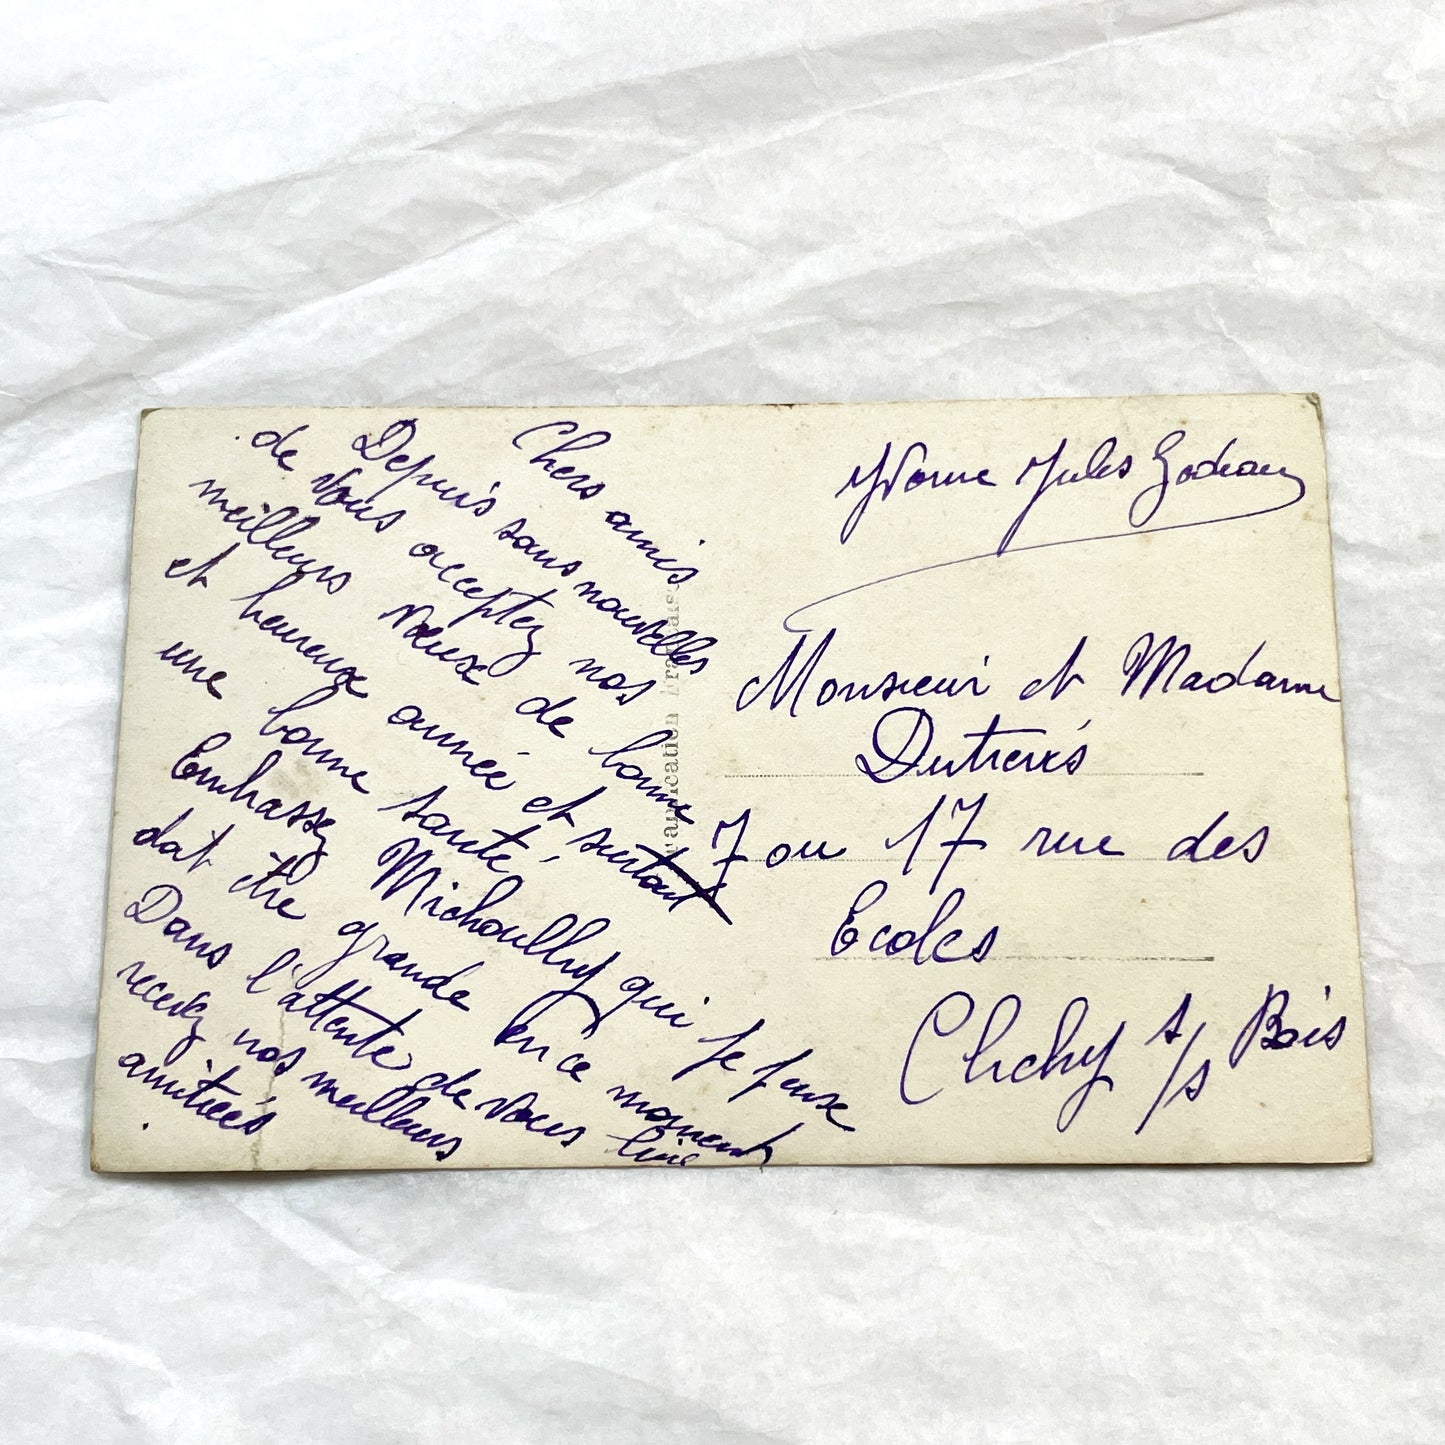 Chers amis
Depuis sans nouvelles
de vous acceptez nos
meilleurs voeux de bonne
et heureuse année et surtout
une bonne santé,
Embrassez Michoully qui je pense
doit être grande en ce moment
Dans l'attente de vous lire
recevez nos meilleurs
amitiées
Yvonne Jules Godeau
Monsieur et Madame
7 ou 17 rue des
Ecoles
Clichy s/s Bois
Fabrication Française